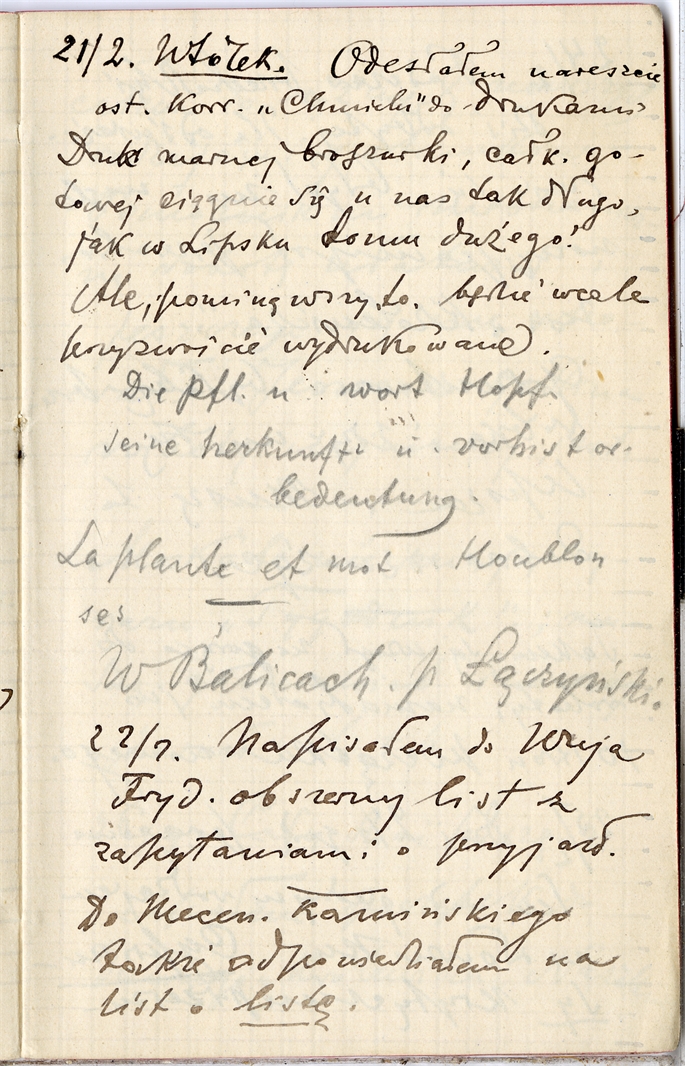 21/2. Wtorek. Odesłałem nareszcie
ost. Korr. „Chmielu" do drukarni
Druk marnej broszurki, całk. go-
towej ciągnie się u nas tak długo,
jak w Lipsku tomu dużego!
Ale, pominąwszy to, będzie wcale
przyzwoicie wydrukowane.
Die pfl. u wort Hopf.
seine herkunft u. vorhistor.
bedeutung.
La plante et mot Houblon
ses
W Balicach. p. Łączyński.
22/2. Napisałem do Wuja
Fryd. obszerny list z
zapytaniami o przyjazd.
Do Mecen. Kamińskiego
także odpowiedziałem na
list o listę.